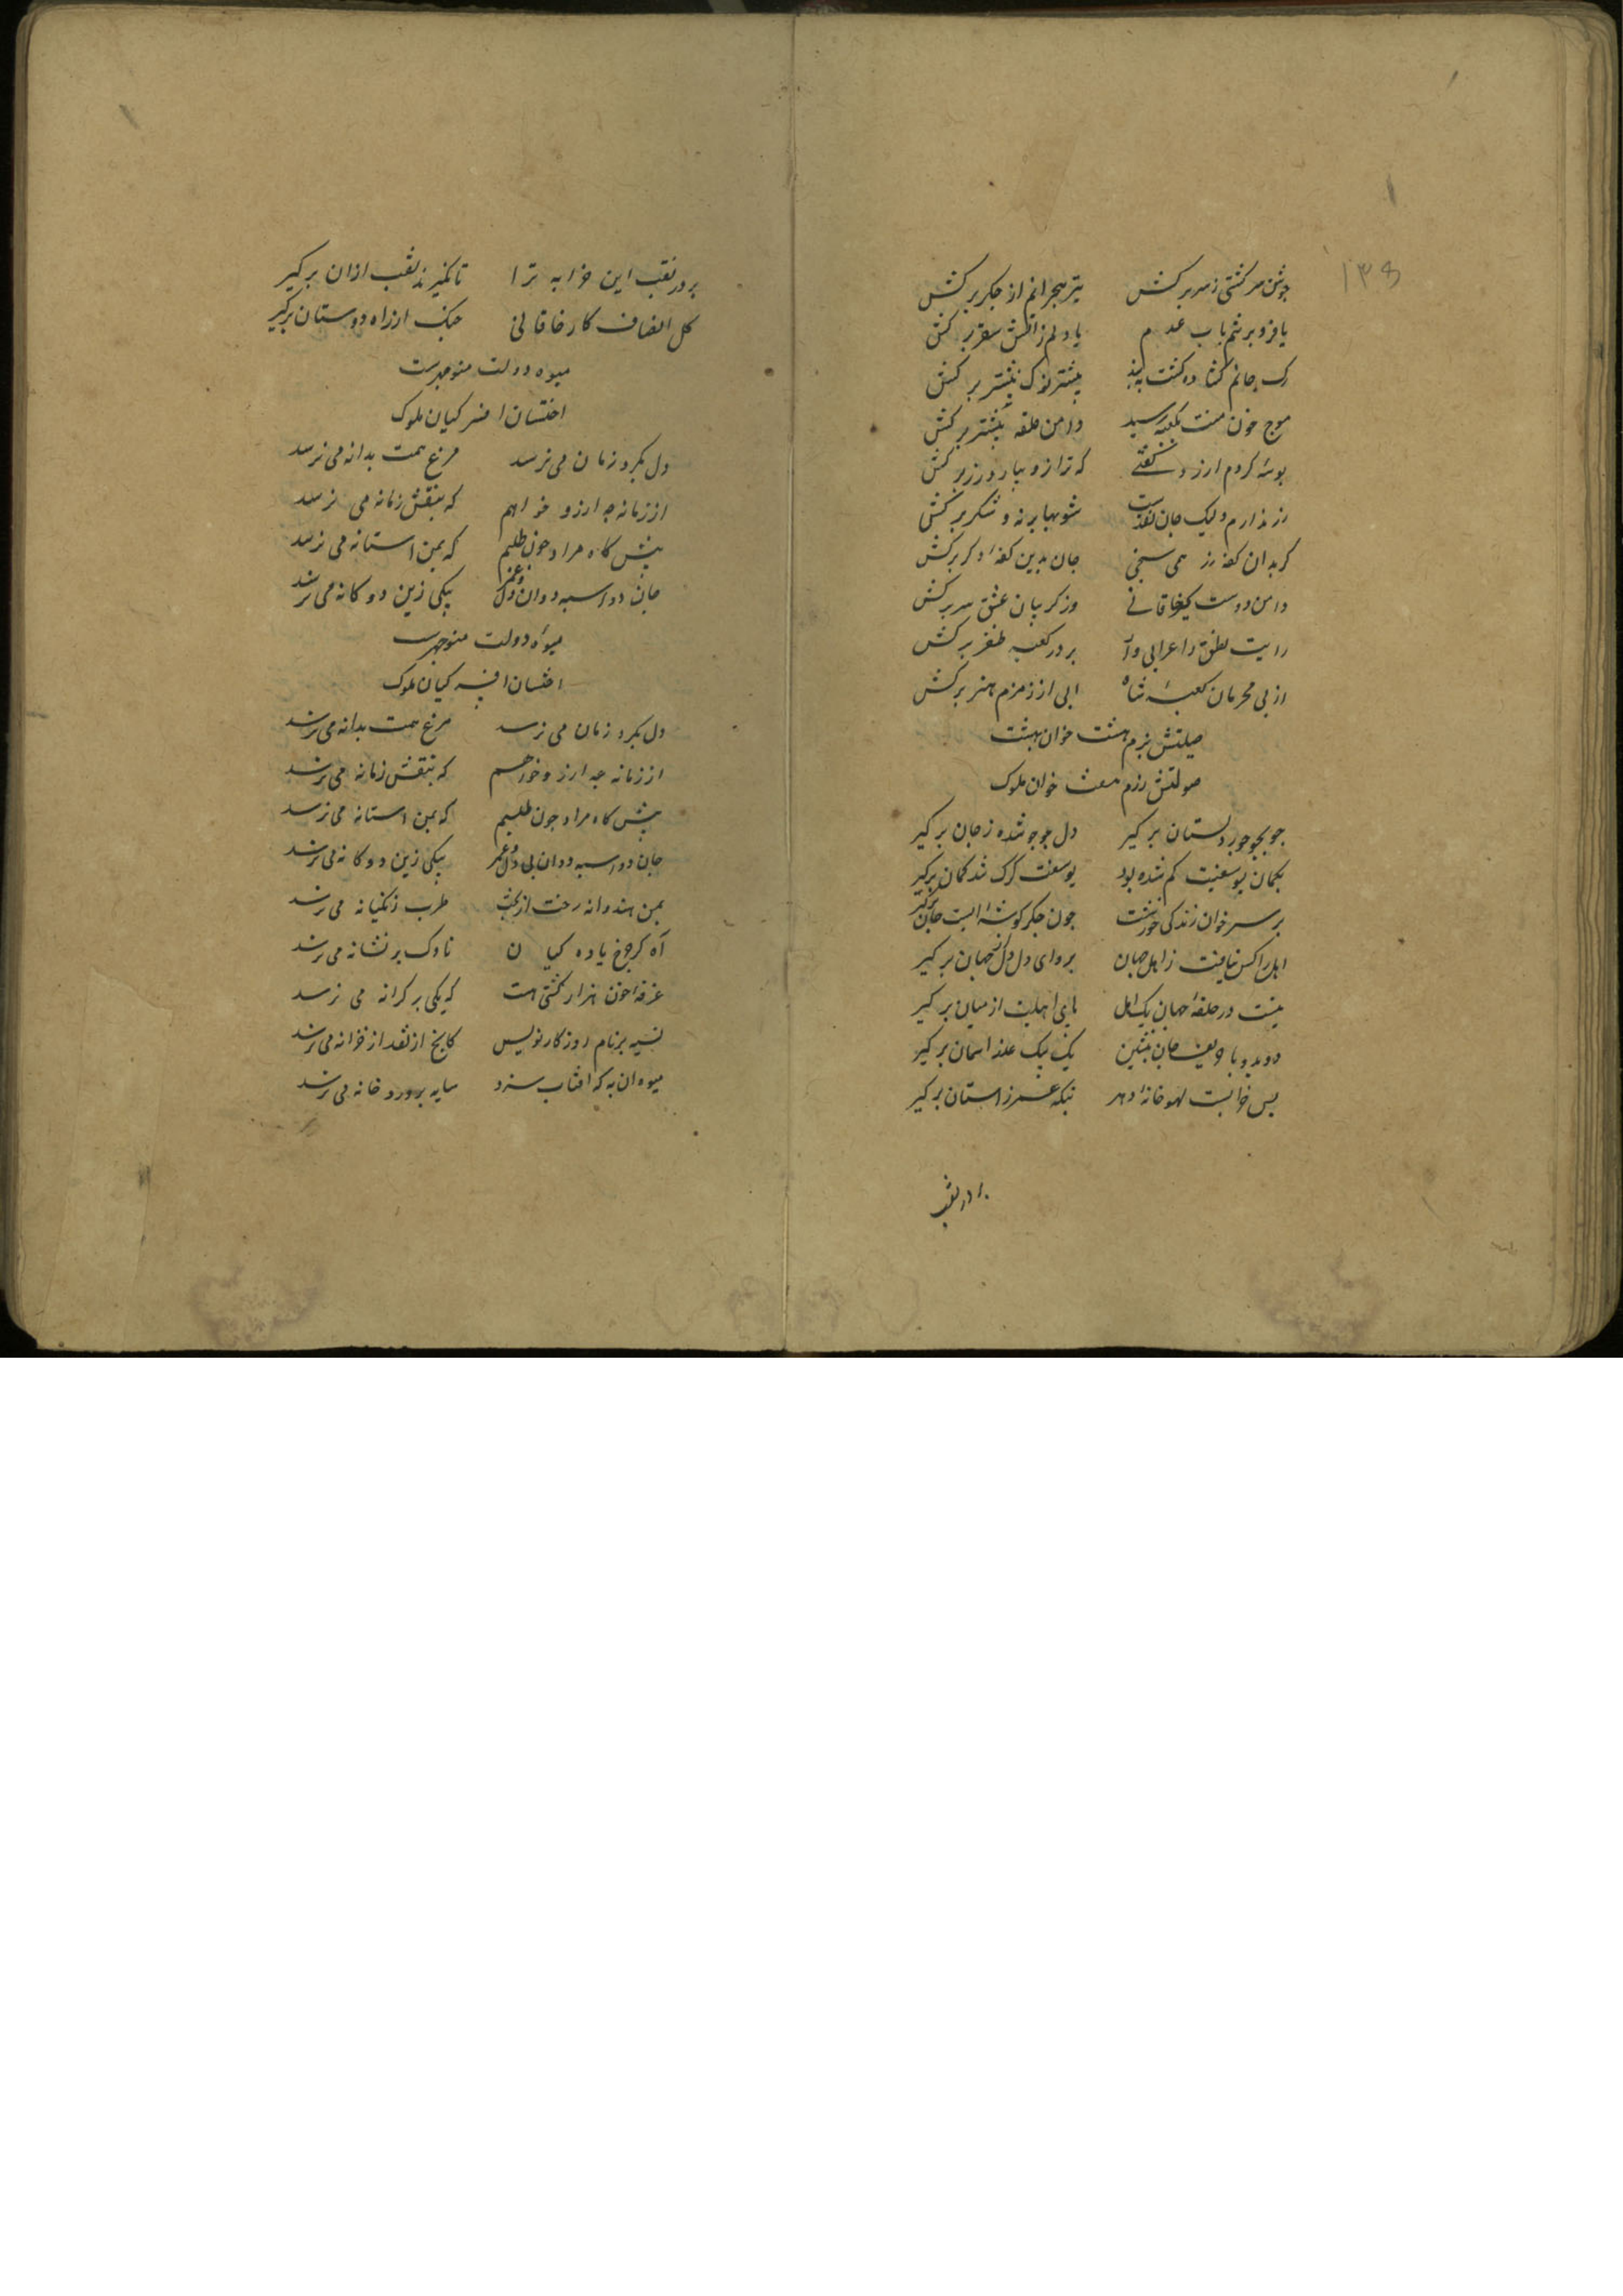 ۱۳۵
جوشن سرکشی ز سر برکش تیر هجرانم از جکر برکش
یا فرو بر تنم باب عدم یا دلم ز آتش سقر برکش
رک جانم کشاده کشت ببند نیشتر نوک نیشتر برکش
موج خون منت بکعبه رسید دامن حلقه بیشتر برکش
بوسهٔ کردم ارزو کفتی که ترازو بیار و زر برکش
زر ندارم ولیک جان نقدست شو بها برنه و شکر برکش
کر بدان کفه زر همی سنجی جان بدین کفهٔ دکر برکش
دامن دوست کیر خاقانی وز کریبان عشق سر برکش
رایت نطق را عرابی وار بر در کعبه ظفر برکش
از پی محرمان کعبهٔ شاه ابی از زمزم هنر برکش
صیلتش بزم هشت خوان بهشت
صولتش رزم هفت خوان ملوک
جو بجو جور دلستان برکیر دل جوجو شده ز جان برکیر
بکمان یوسفیت کم شده بود یوسفت کرک شد کمان برکیر
بر سر خوان زندکی خورشت چون جکر کوشهٔ ایست جان برکیر
اهل را کس نیافت ز اهل جهان برو ای دل دل از جهان برکیر
نیست در حلقهٔ جهان یک اهل پای اهلیت از میان برکیر
دو بدو با حریف جان بنشین یک بیک علف اسمان برکیر
بس خرابیت لهو خانهٔ دهر تکیه عمر ز استان برکیر
بر در نقب
بر در نقب این خرابه ترا تا نکیرند نقب ازان برکیر
کل انصاف کار خاقانی خنک از راه دوستان برکیر
میوه دولت منوچهرست
اخستان افسر کیان ملوک
دل بکرد زمان می نرسد مرغ همت بدانه می نرسد
از زمانه چه ارزو خواهم که بنقش زمانه می نرسد
پیش کاه مراد چون طلبم که بمن استانه می نرسد
جان دو اسبه دوان دل و عمر بیکی زین دو کانه می نرسد
میوهٔ دولت منوچهرست
اخستان افسر کیان ملوک
دل بکرد زمان می نرسد مرغ همت بدانه می نرسد
از زمانه چه ارزو خواهم که بنقش زمانه می نرسد
پیش کاه مراد چون طلبیم که بمن استانه می نرسد
جان دو اسبه دوان پی دل و عمر بیکی زین دو کانه می نرسد
بمن هندوانه رخت از بخت طرب زنکیانه می نرسد
آه کز چرخ یاده کیان ناوک بر نشانه می نرسد
غرقهٔ خون هزار کشتی هست که یکی بر کرانه می نرسد
نسیه بر نام روزکار نویس کانچ از نقد از خزانه می نرسد
میوه ان به که افتاب پزد سایه پرورد خانه می نرسد